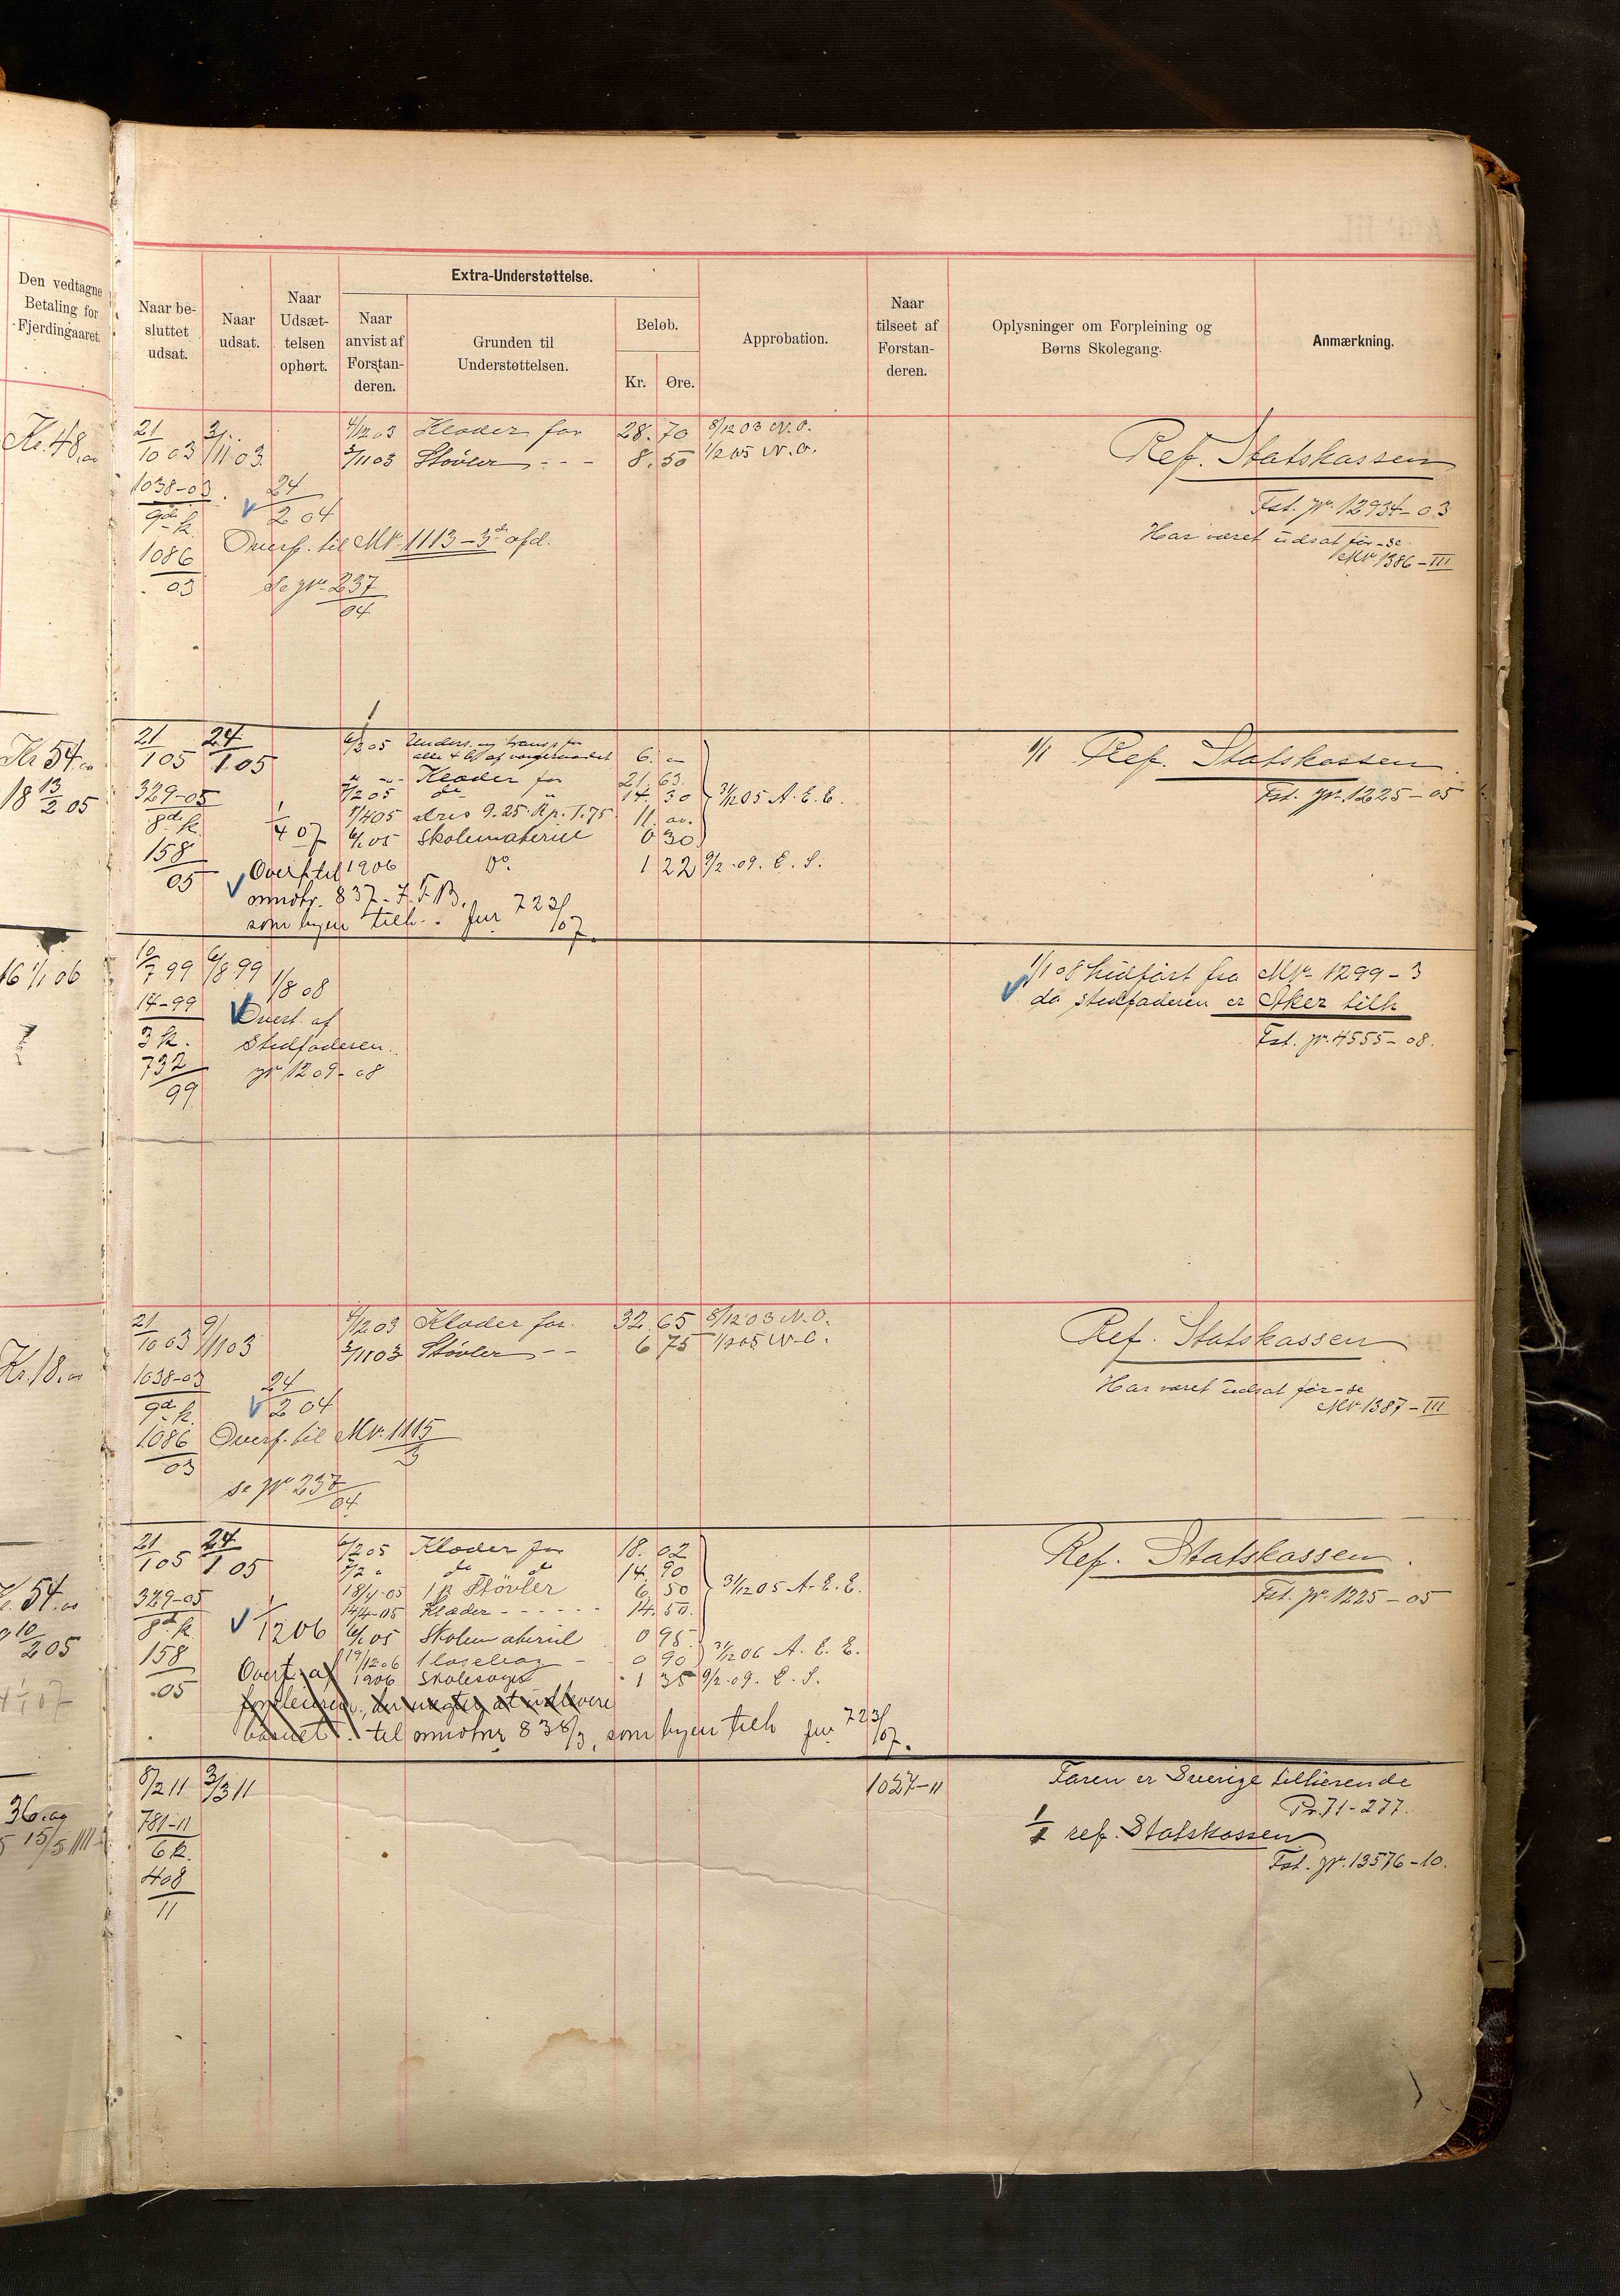 Den vedtagne
Betaling for
Fjerdingaaret.
Naar be-
sluttet
udsat.
Naar
udsat.
Naar
Udsæt-
telsen
ophørt.
Extra-Understøttelse.
Naar
anvist af
Forstan-
deren.
Grunden til
Understøttelsen.
Beløb.
Kr. Øre.
Approbation.
Naar
tilseet af
Forstan-
deren.
Oplysninger om Forpleining og
Børns Skolegang.
Anmærkning.
Kr. 48.00
21/10 03 3/11 03 4/12 03 Klæder for 28. 70 8/12 03 N.O.
3/11 03 Støvler - - - 8. 50 1/2 05 N.O.
Ref. Statskassen
1038-03 24/2 04
Fst. Jr. 12934-03
9de k.
Overf. til Mk. 1113-3de afd.
Har været udsat før-se
Mk 1386-III
1086/03 Se Jr. 237/04
Kr 54.00
18 13/2 05
21/1 05 24/1 05 6/2 05 Unders. og transp. for
6.
1/1 Ref. Statskassen
Klæder for 21. 63.
7/2 05 do 14. 30 31/12 05 A.E.E.
Fst. Jr. 1225-05
329-05
8de k. 1/4 07
11.
6/1 05 Skolemateriel 0 30
158/05 Overf. til 1906 Do. 1 22 9/2-09. E.S.
omnotr. 837-
som byen tilh. Jur 723/07.
16 1/1 06
10/7 99 6/8 99 1/8 08
1/1 08 hidført fra Mk. 1299-3
da stedfaderen er Aker tilh
14-99 Overt. af
3 k. Stedfaderen.
Fst. Jr. 4555-08.
732/99 Jr 1209-08
Kr. 18.00
21/10 03 9/11 03 4/12 03 Klæder for. 32. 65 8/12 03 N.O.
3/11 03 Støvler - - 6 75 1/2 05 N.O.
Ref. Statskassen
1038-03 24/2 04
Har været udsat før-se
Mk 1387-III
9de k.
1086/03 Overf. til Mk. 1115/3
se Jr 237/04
54.00
10/2 05
21/1 05 24/1 05 6/2 05 Klæder for 18. 02
7/2 " do do 14. 90
Ref. Statskassen
329-05 18/4-05 1 p Støvler 6 50 31/12 05 A.E.E.
Fst. Jr. 1225-05
14/4-05 Klæder - - - - - 14. 50.
8de k. 1/12 06 6/1 05 Skolemateriel 0 95
158/05 19/12 06 0 90 31/12 06 A.E.E.
Overt. af 1906 1 35 9/2-09. E.S.
forpleieren, der nægter at udlevere
barnet. til omnotnr 838/3, som byen tilh Jur 723/07.
36.00
15/5
8/2 11 3/3 11 1027-11 Faren er Sverige tilhørende
Pr. 71-277.
781-11 ref. Statskassen
6 k. Fst. Jr. 13576-10.
408/11